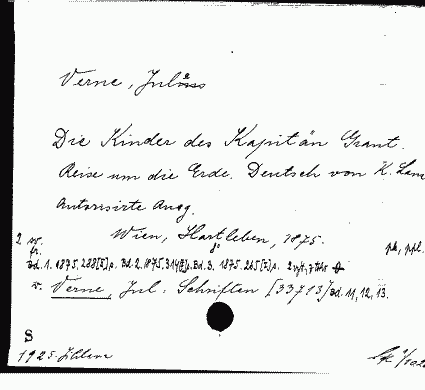 Verne, Julius
Die Kinder des Kapitän Grant.
Reise um die Erde. Deutsch von K. Lam
Autorisirte Ausg.
Wien, Hartleben, 1875.
2 w. pk, ppl.
fr.
Bd. 1. 1875, 288[2]p. Bd. 2. 1875, 314[2]p. Bd. 3. 1875. 265[2]p.
v. Verne, Jul: Schriften [33713] Bd. 11, 12, 13.
S
1925